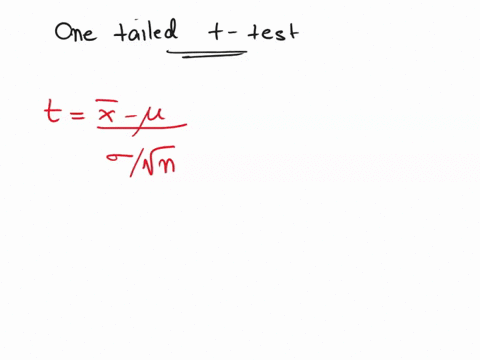 One tailed t-test
t = x̄ - μ
σ/√n